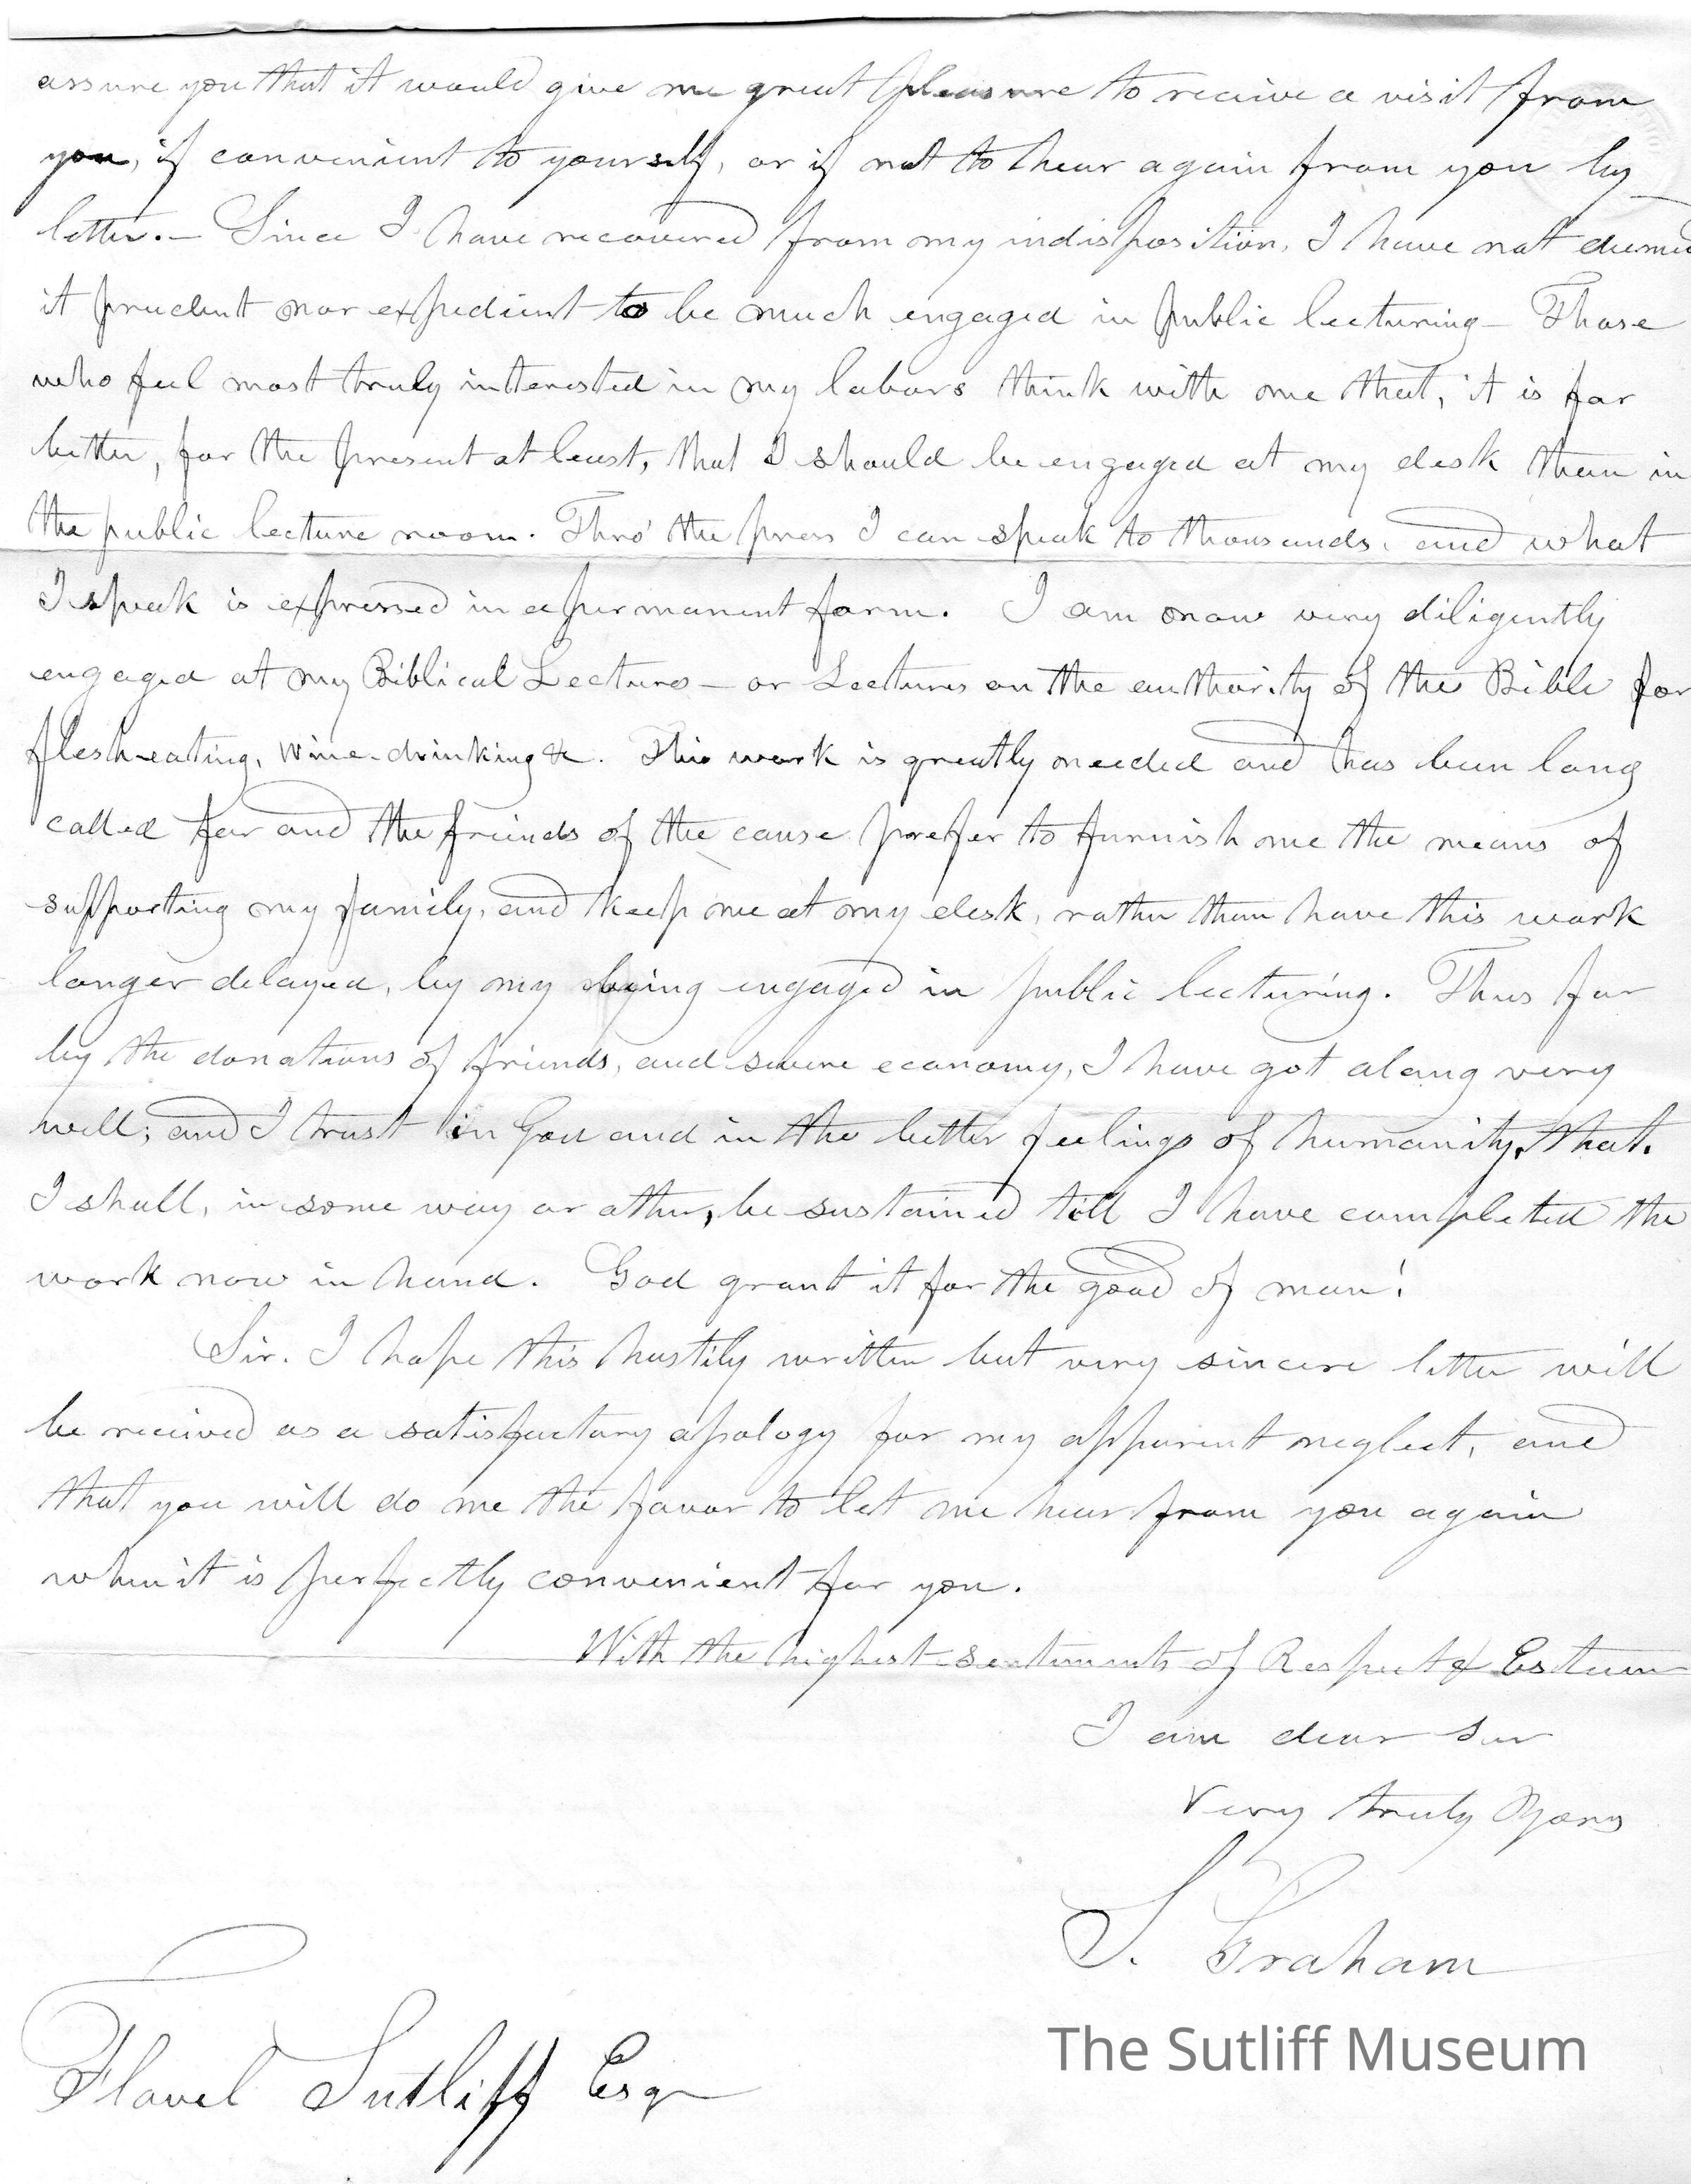 assure you that it would give me great pleasure to receive a visit from
you, if convenient to yourself, or if not to hear again from you by
letter. — Since I have recovered from my indisposition, I have not deemed
it prudent nor expedient to be much engaged in public lecturing — Those
who feel most truly interested in my labors think with me that, it is far
better, for the present at least, that I should be engaged at my desk than in
the public lecture room. Thro' the press I can speak to thousands, and what
I speak is expressed in a permanent form. I am now very diligently
engaged at my Biblical Lectures — or Lectures on the authority of the Bible for
flesh-eating, wine-drinking &c. This work is greatly needed and has been long
called for and the friends of the cause prefer to furnish me the means of
supporting my family, and keep me at my desk, rather than have this work
longer delayed, by my being engaged in public lecturing. Thus far
by the donations of friends, and severe economy, I have got along very
well; and I trust in God and in the better feelings of humanity, that,
I shall, in some way or other, be sustained till I have completed the
work now in hand. God grant it for the good of man!
Sir. I hope this hastily written but very sincere letter will
be received as a satisfactory apology for my apparent neglect, and
that you will do me the favor to let me hear from you again
when it is perfectly convenient for you.
With the highest sentiments of Respect & Esteem
I am dear sir
Very truly Yours
S. Graham
The Sutliff Museum
Flavel Sutliff Esqr